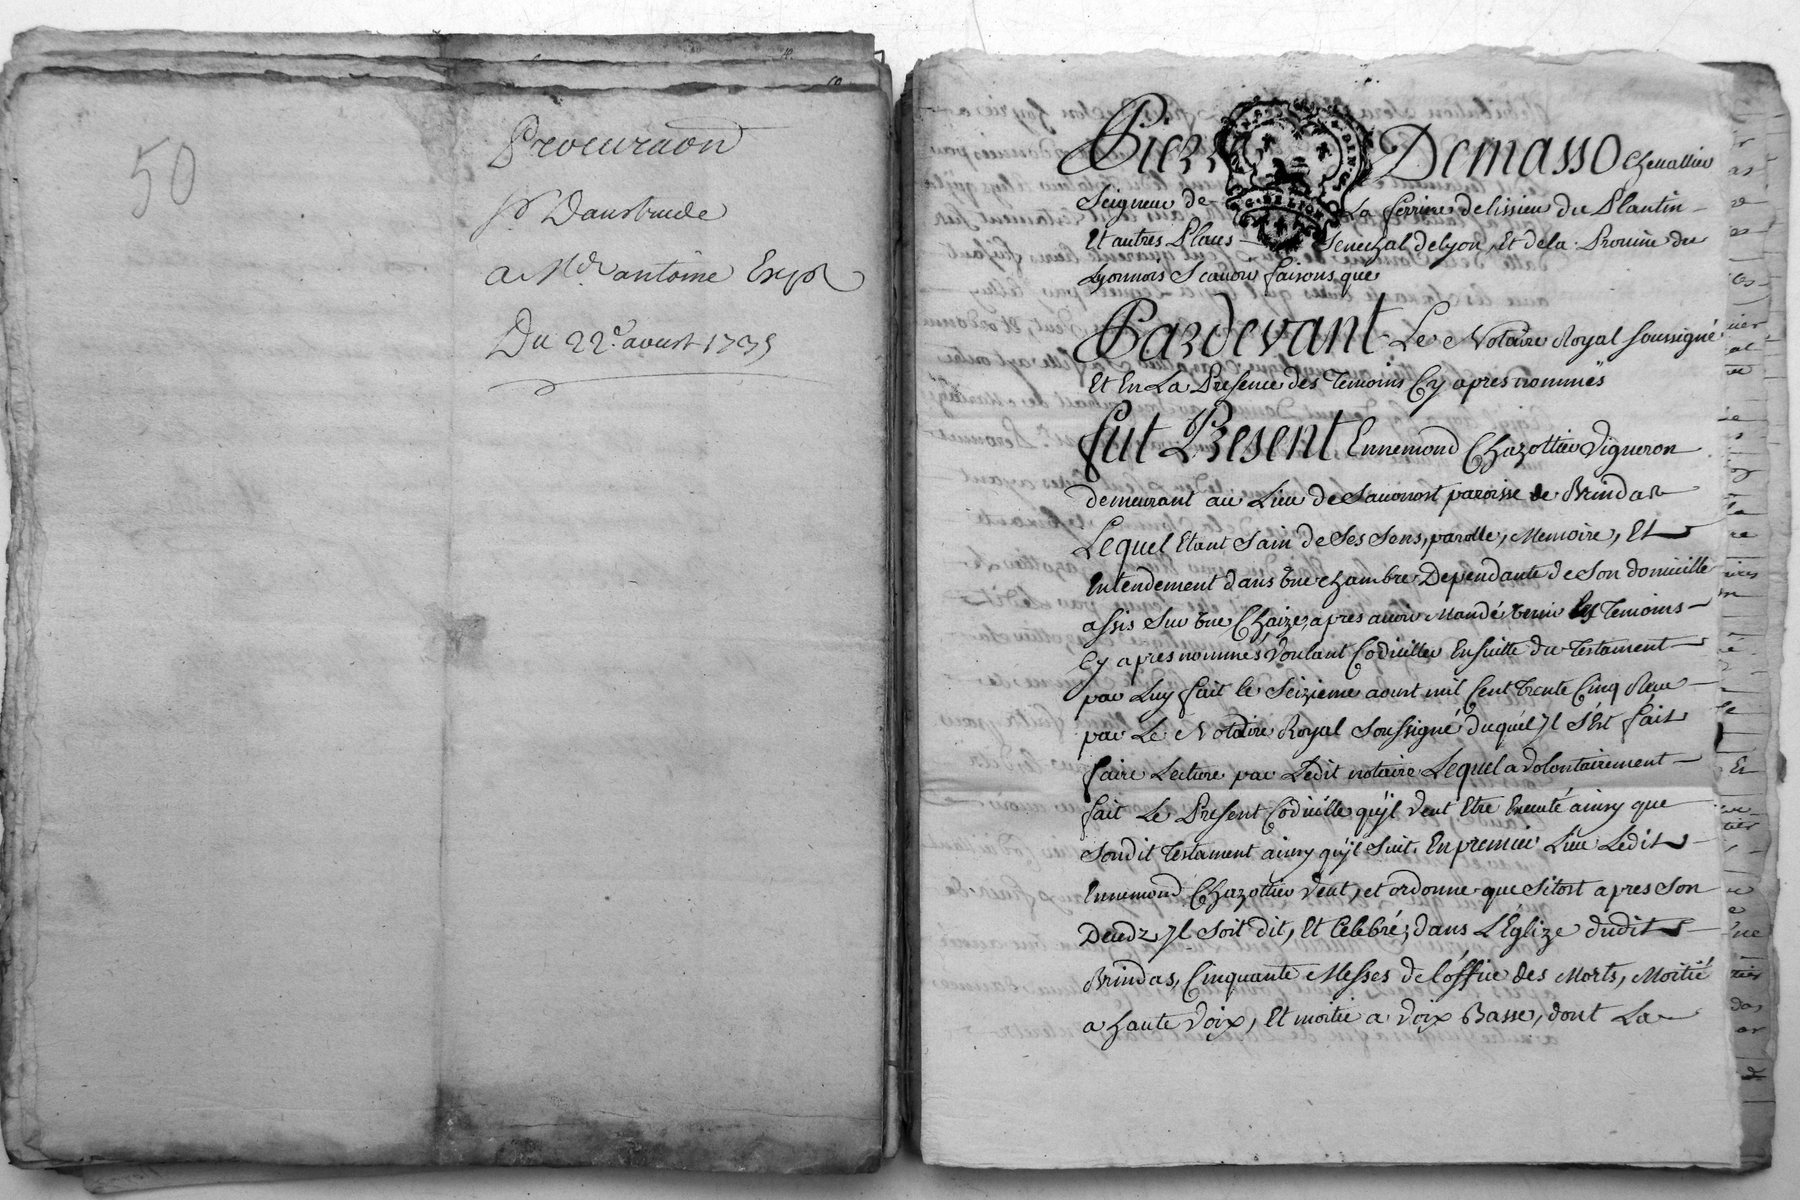 50
Procuraõn
Sr Dausbude
a Mr. antoine
Du 22e. aoust 1735
Pierre Demasso Chevallier
Seigneur de La ferriere delissieu du Plantin
Et autres Places Senechal delyon, Et dela Province du
Lyonnois Scavoir faisons que
Pardevant Le Notaire Royal soussigné
Et En La Presence des Temoins Cy apres nommés
fut Present Ennemond Chazottier Vigneron
demeurant au Lieu de Sauonost paroisse de Brindas
Lequel Etant Sain de Ses Sens, parolle, Memoire, Et
Entendement dans Une chambre Dependante de Son domicille
assis Sur Une Chaize, apres avoir Mandé Venir Les Temoins
Cy apres nommés Voulant Codiciller Ensuitte du Testament
par Luy fait le Seizieme aoust mil Cent Trente Cinq Receu
par Le Notaire Royal Soussigné duquel Jl s'Est fait
faire Lecture par Ledit notaire Lequel a Volontairement
fait Le Present Codicille qu'jl Veut Etre Executé ainsy que
Sondit Testament ainsy qu'jl Suit. En premier Lieu Ledit
Ennemond Chazottier Veut, et ordonne que Sitost apres Son
Decedz Jl Soit dit, Et Celebré, dans L'Eglize dudit
Brindas, Cinquante Messes de l'office des Morts, Moitié
a haute Voix, Et moitié a Voix Basse, dont La